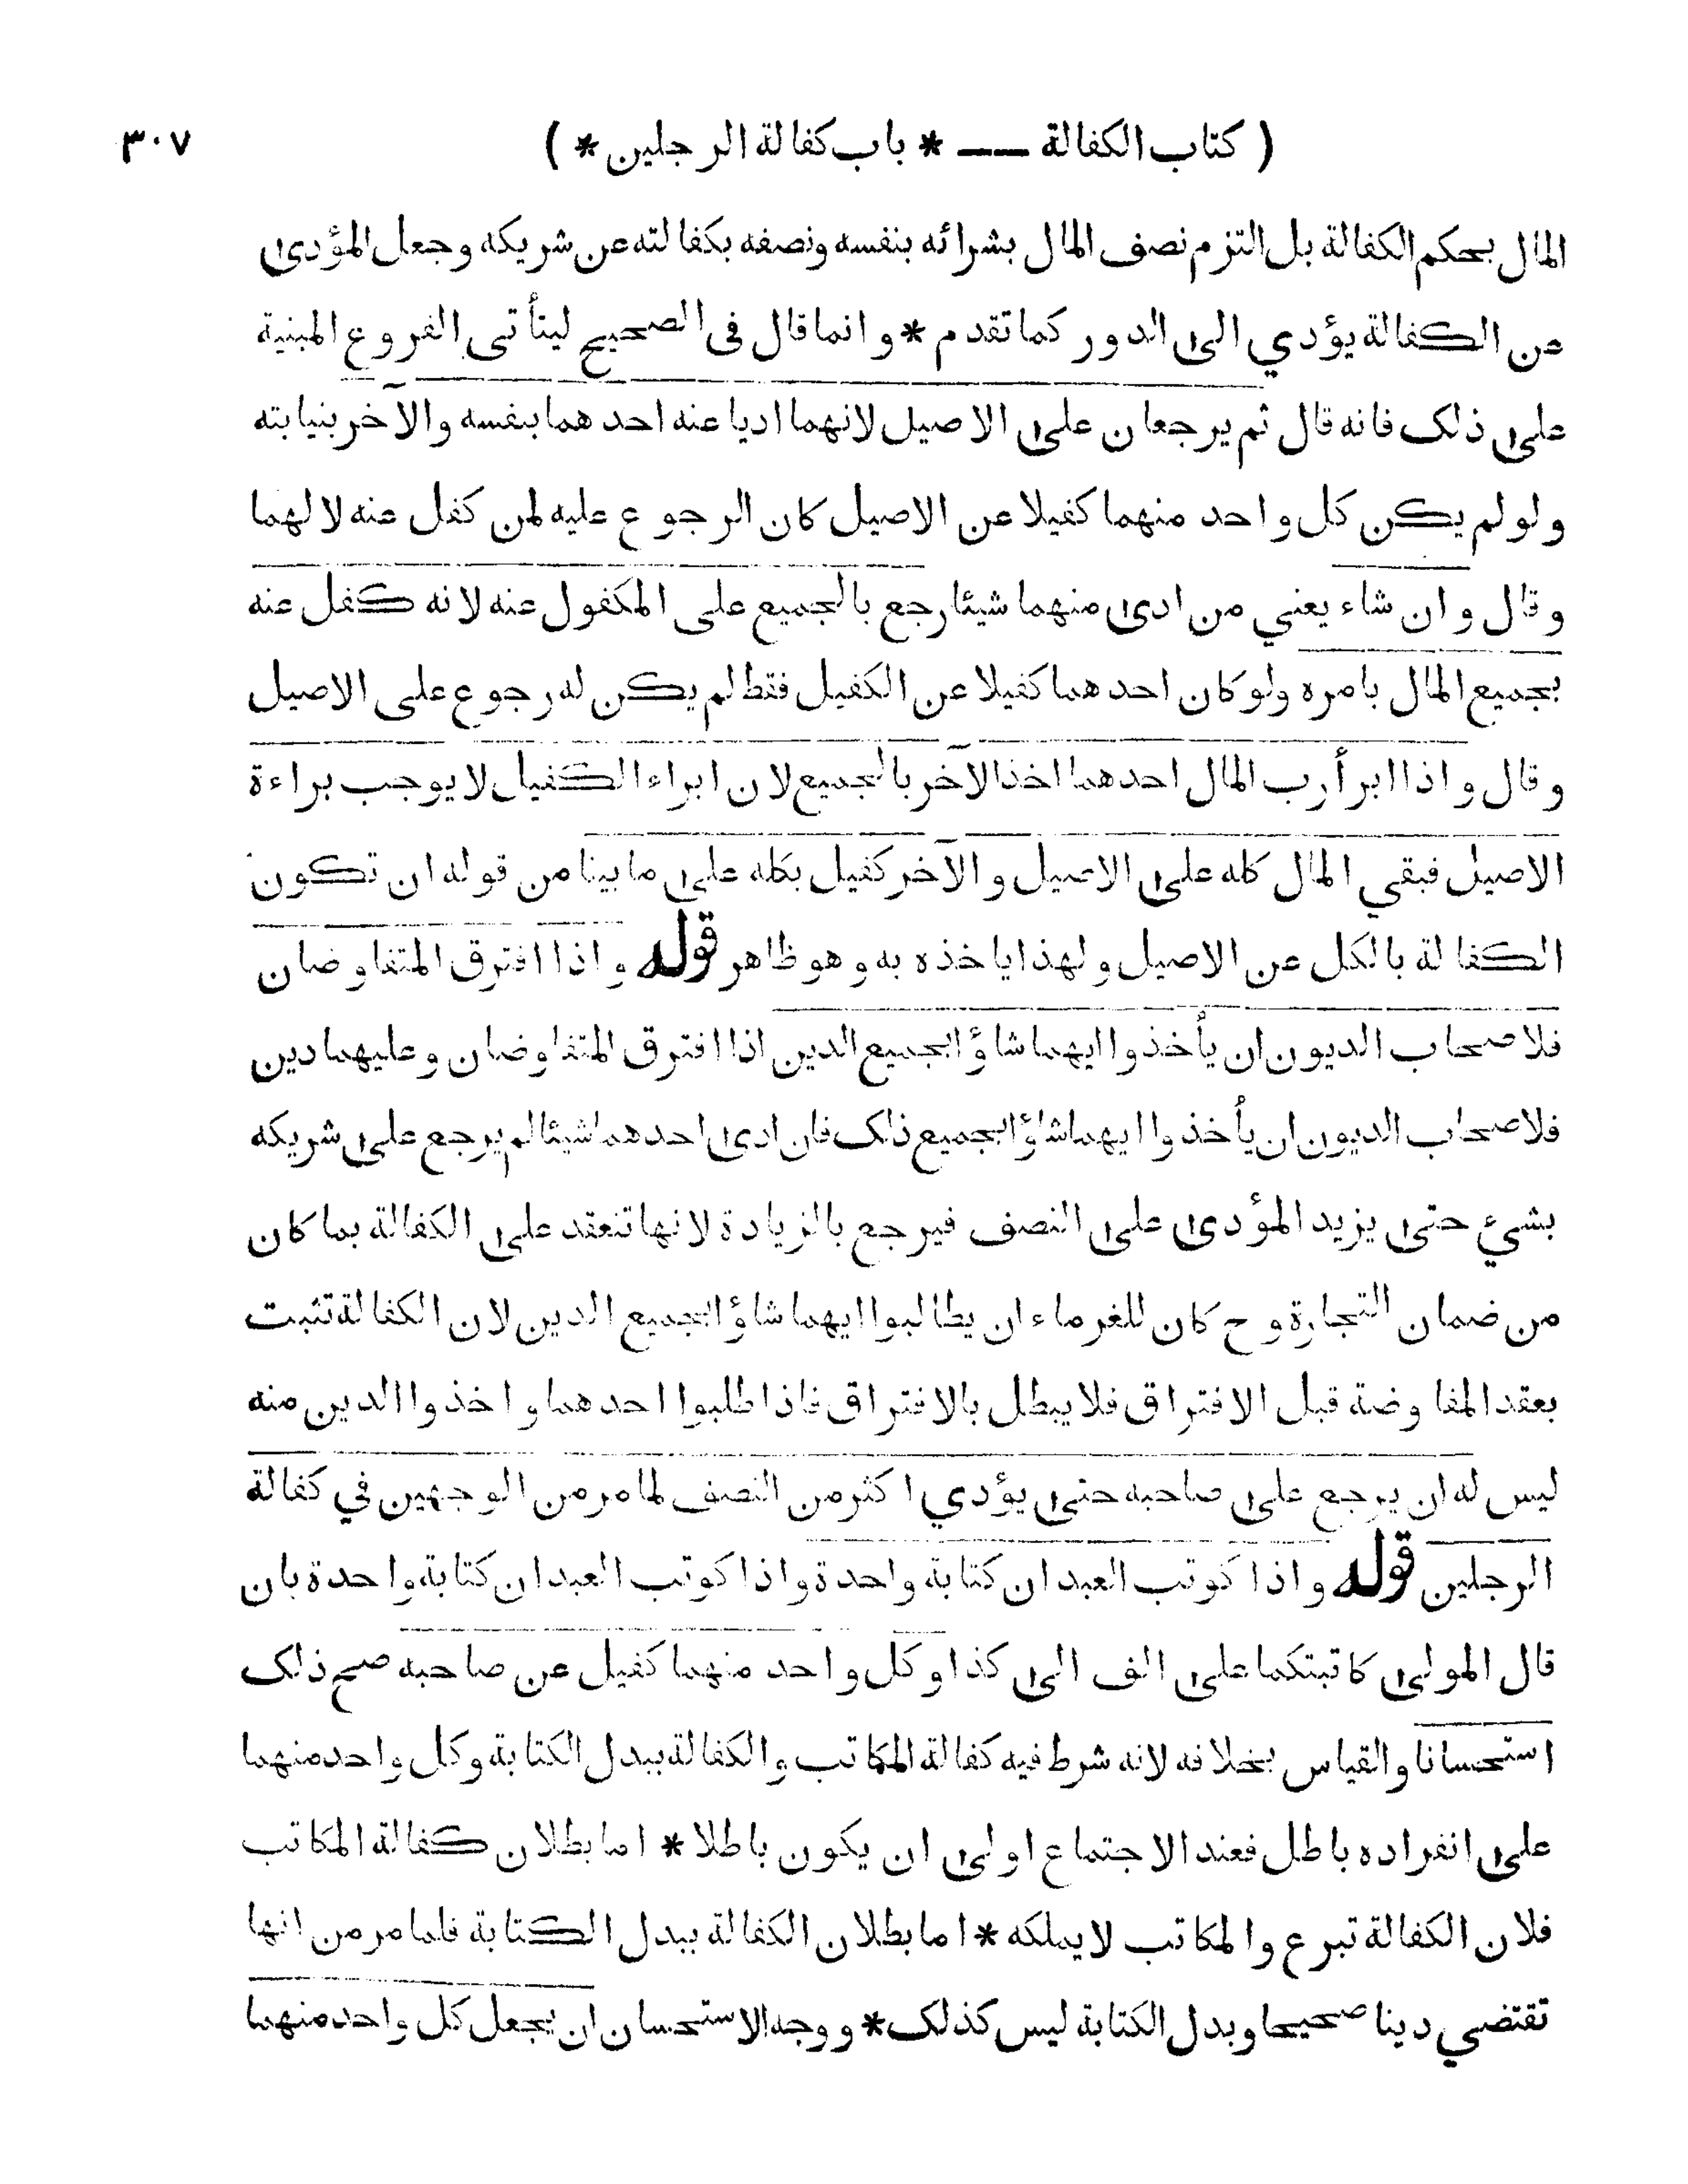 ( كتاب الكفالة —— * باب كفالة الرجلين * ) ٣٠٧
المال بحكم الكفالة بل التزم نصف المال بشرائه بنفسه ونصفه بكفالته عن شريكه وجعل المؤدى
عن الكفالة يؤدي الى الدور كما تقدم * وانما قال فى الصحيح ليتأتى الفروع المبنية
على ذلك فانه قال ثم يرجعان على الاصيل لانهما اديا عنه احدهما بنفسه والآخر بنيابته
ولو لم يكن كل واحد منهما كفيلا عن الاصيل كان الرجوع عليه لمن كفل عنه لا لهما
وقال وان شاء يعني من ادى منهما شيئا رجع بالجميع على المكفول عنه لانه كفل عنه
بجميع المال بامره ولو كان احدهما كفيلا عن الكفيل فقط لم يكن له رجوع على الاصيل
وقال واذا ابرأ رب المال احدهما اخذ الآخر بالجميع لان ابراء الكفيل لا يوجب براءة
الاصيل فبقي المال كله على الاصيل والآخر كفيل بكله على ما بينا من قوله ان تكون
الكفالة بالكل عن الاصيل ولهذا ياخذه به وهو ظاهر قوله واذا افترق المتفاوضان
فلاصحاب الديون ان يأخذوا ايهما شاؤا بجميع الدين اذا افترق المتفاوضان وعليهما دين
فلاصحاب الديون ان يأخذوا ايهما شاؤا بجميع ذلك فان ادى احدهما شيئا لم يرجع على شريكه
بشيء حتى يزيد المؤدى على النصف فيرجع بالزيادة لانها تنعقد على الكفالة بما كان
من ضمان التجارة وح كان للغرماء ان يطالبوا ايهما شاؤا بجميع الدين لان الكفالة تثبت
بعقد المفاوضة قبل الافتراق فلا يبطل بالافتراق فاذا طلبوا احدهما واخذوا الدين منه
ليس له ان يرجع على صاحبه حتى يؤدي اكثر من النصف لما مر من الوجهين في كفالة
الرجلين قوله واذا كوتب العبدان كتابة واحدة واذا كوتب العبدان كتابة واحدة بان
قال المولى كاتبتكما على الف الى كذا وكل واحد منهما كفيل عن صاحبه صح ذلك
استحسانا والقياس بخلافه لانه شرط فيه كفالة المكاتب والكفالة ببدل الكتابة وكل واحد منهما
على انفراده باطل فعند الاجتماع اولى ان يكون باطلا * اما بطلان كفالة المكاتب
فلان الكفالة تبرع والمكاتب لا يملكه * اما بطلان الكفالة ببدل الكتابة فلما مر من انها
تقتضي دينا صحيحا وبدل الكتابة ليس كذلك * ووجه الاستحسان ان يجعل كل واحد منهما